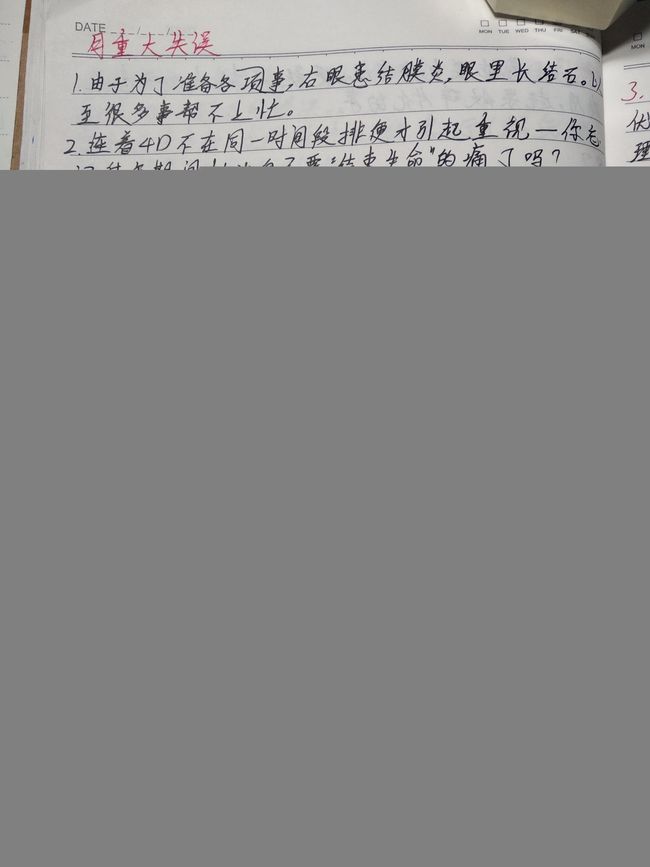 DATE
MON TUE WED THU FRI
月重大失误
1.由于为了准备各项事,右眼患结膜炎,眼里长结石。
至很多事帮不上忙。
2.连着4D不在同一时间段排便才引起重视—你忘
"结束生命"的痛了吗?
MON
3.
优
理